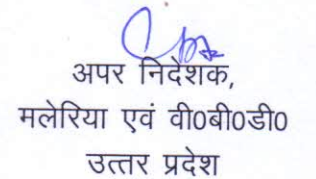 अपर निदेशक,
मलेरिया एवं वी0बी0डी0
उत्तर प्रदेश